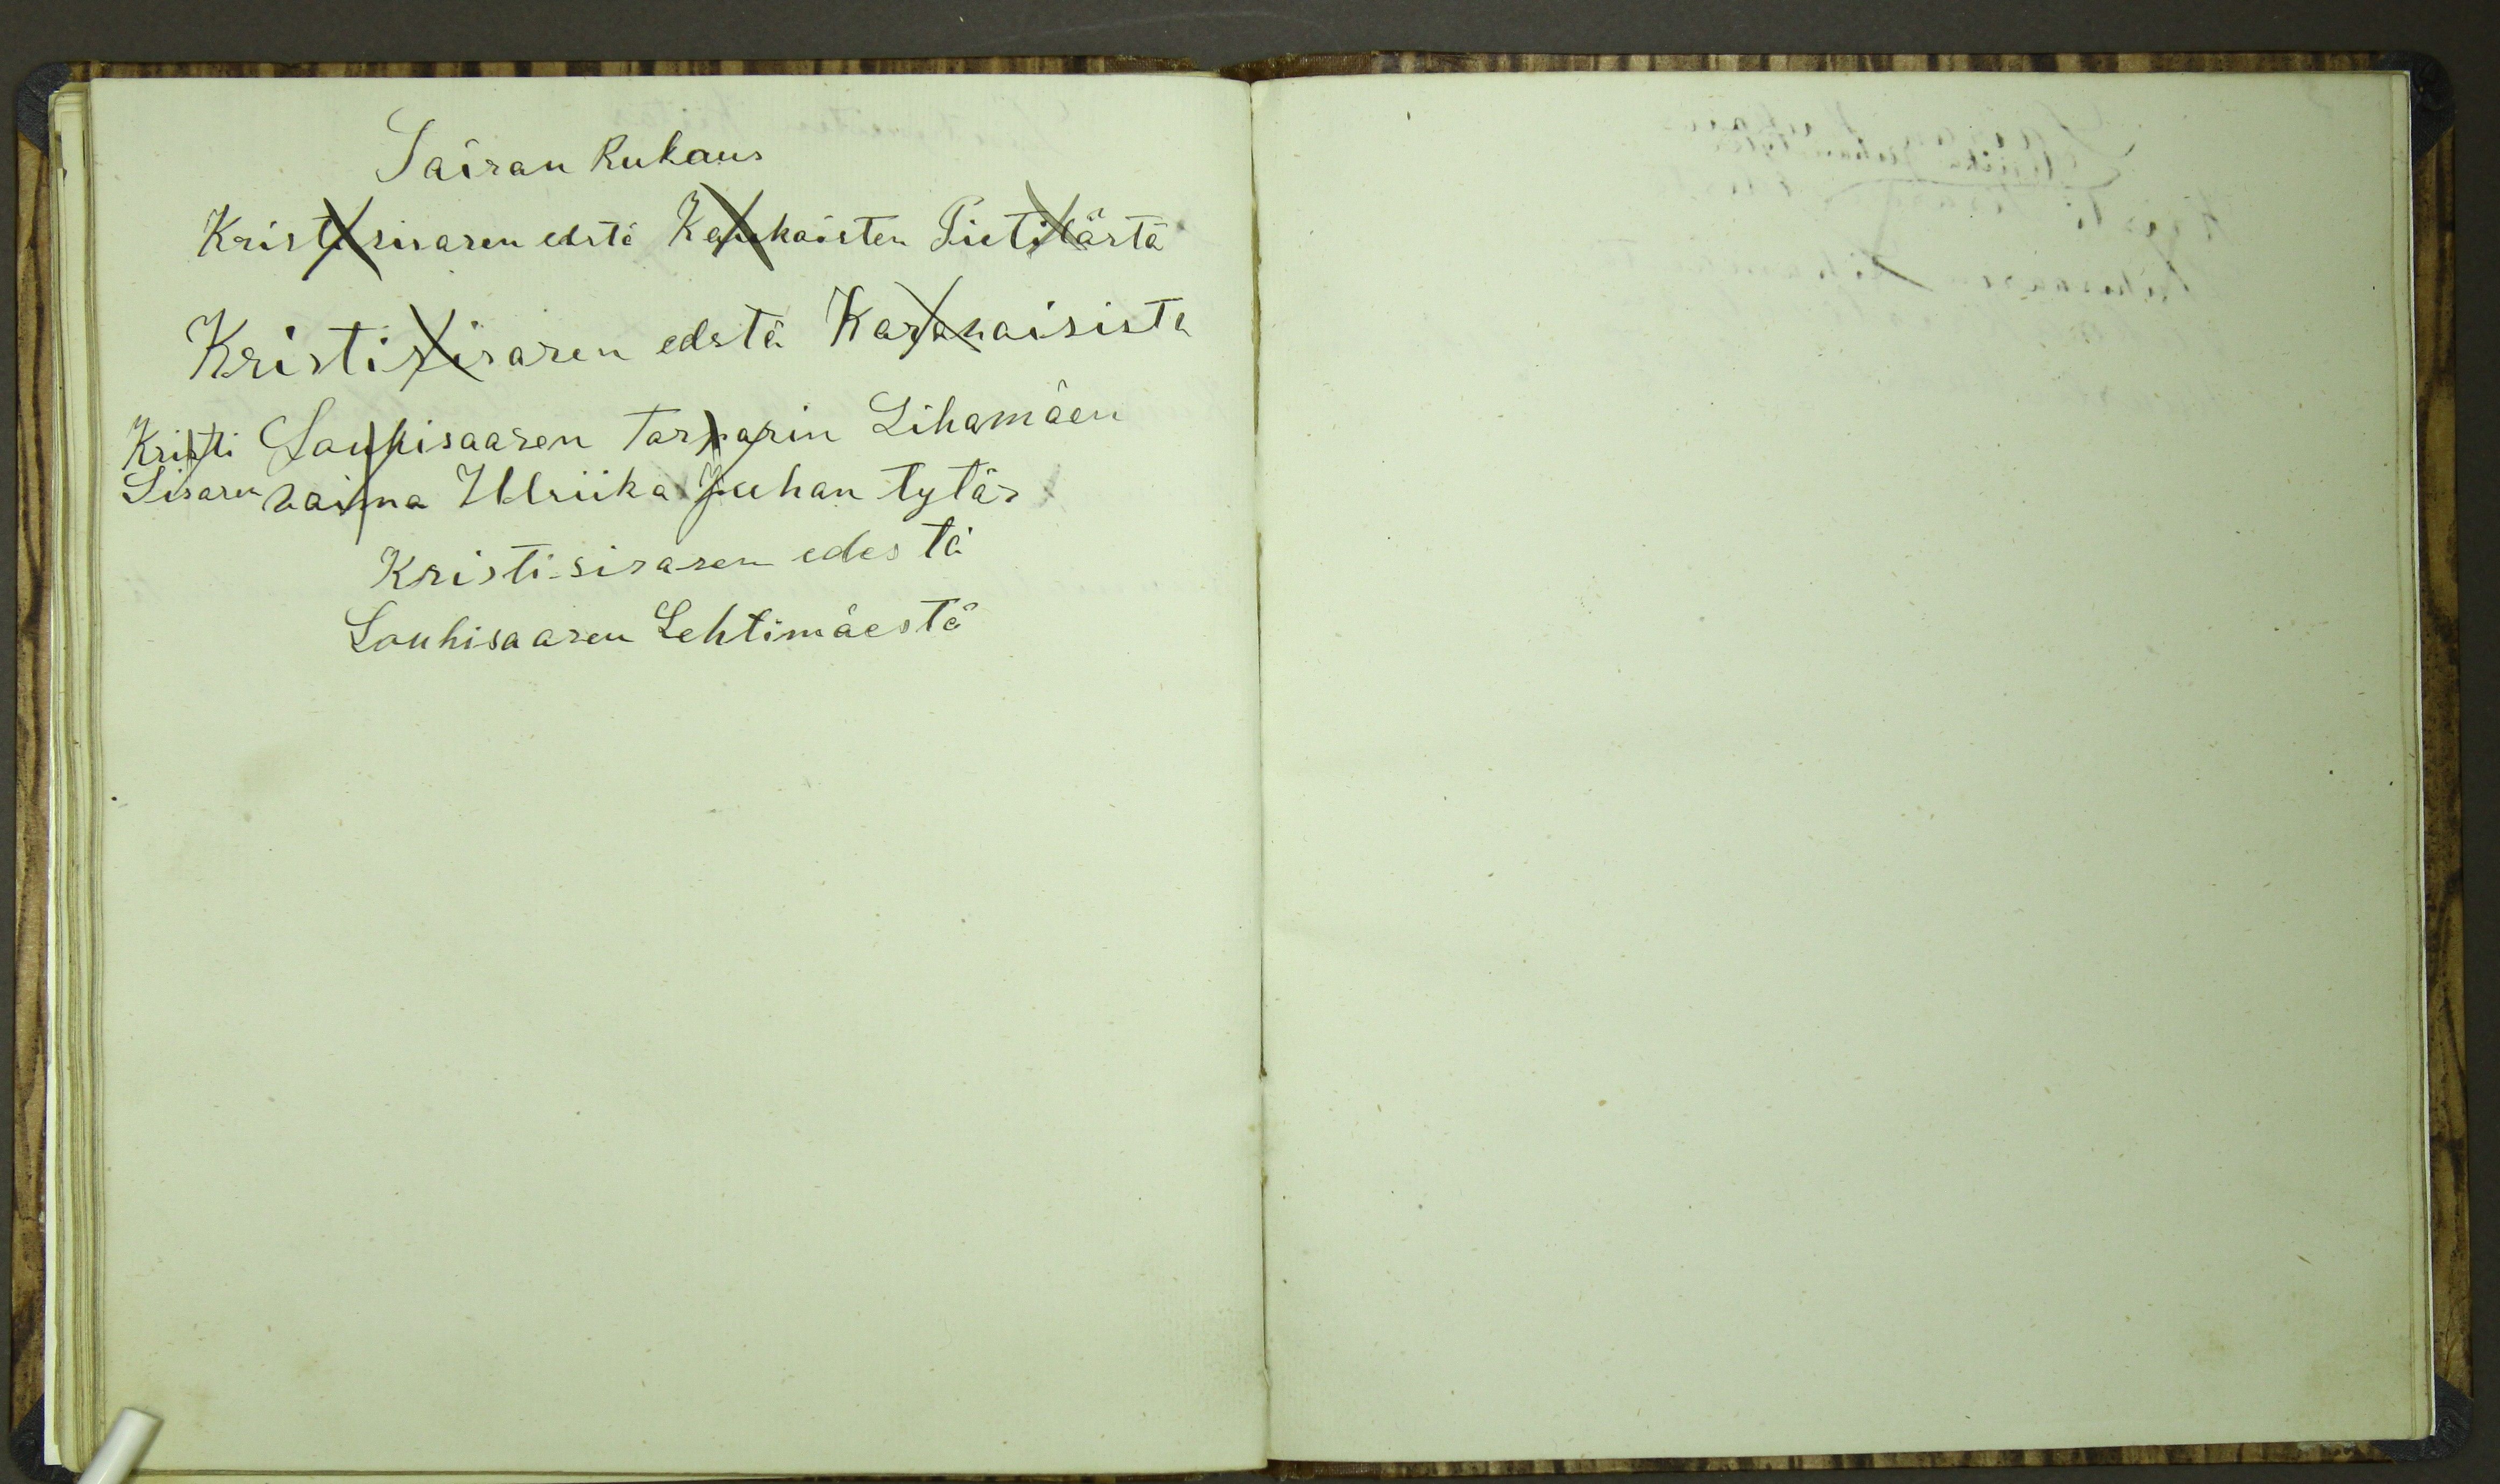 Sairan Rukaus
Kristi sisaren edstä Kaukaisten Pietilästä
Kristi sisaren edstä Karanaisista
Kristi Louhisaaren Torparin Lihamäen
Sisaren vaimo Ulriika Juhan tytär
Kristi-sisaren edestä
Louhisaaren Lehtimäestä